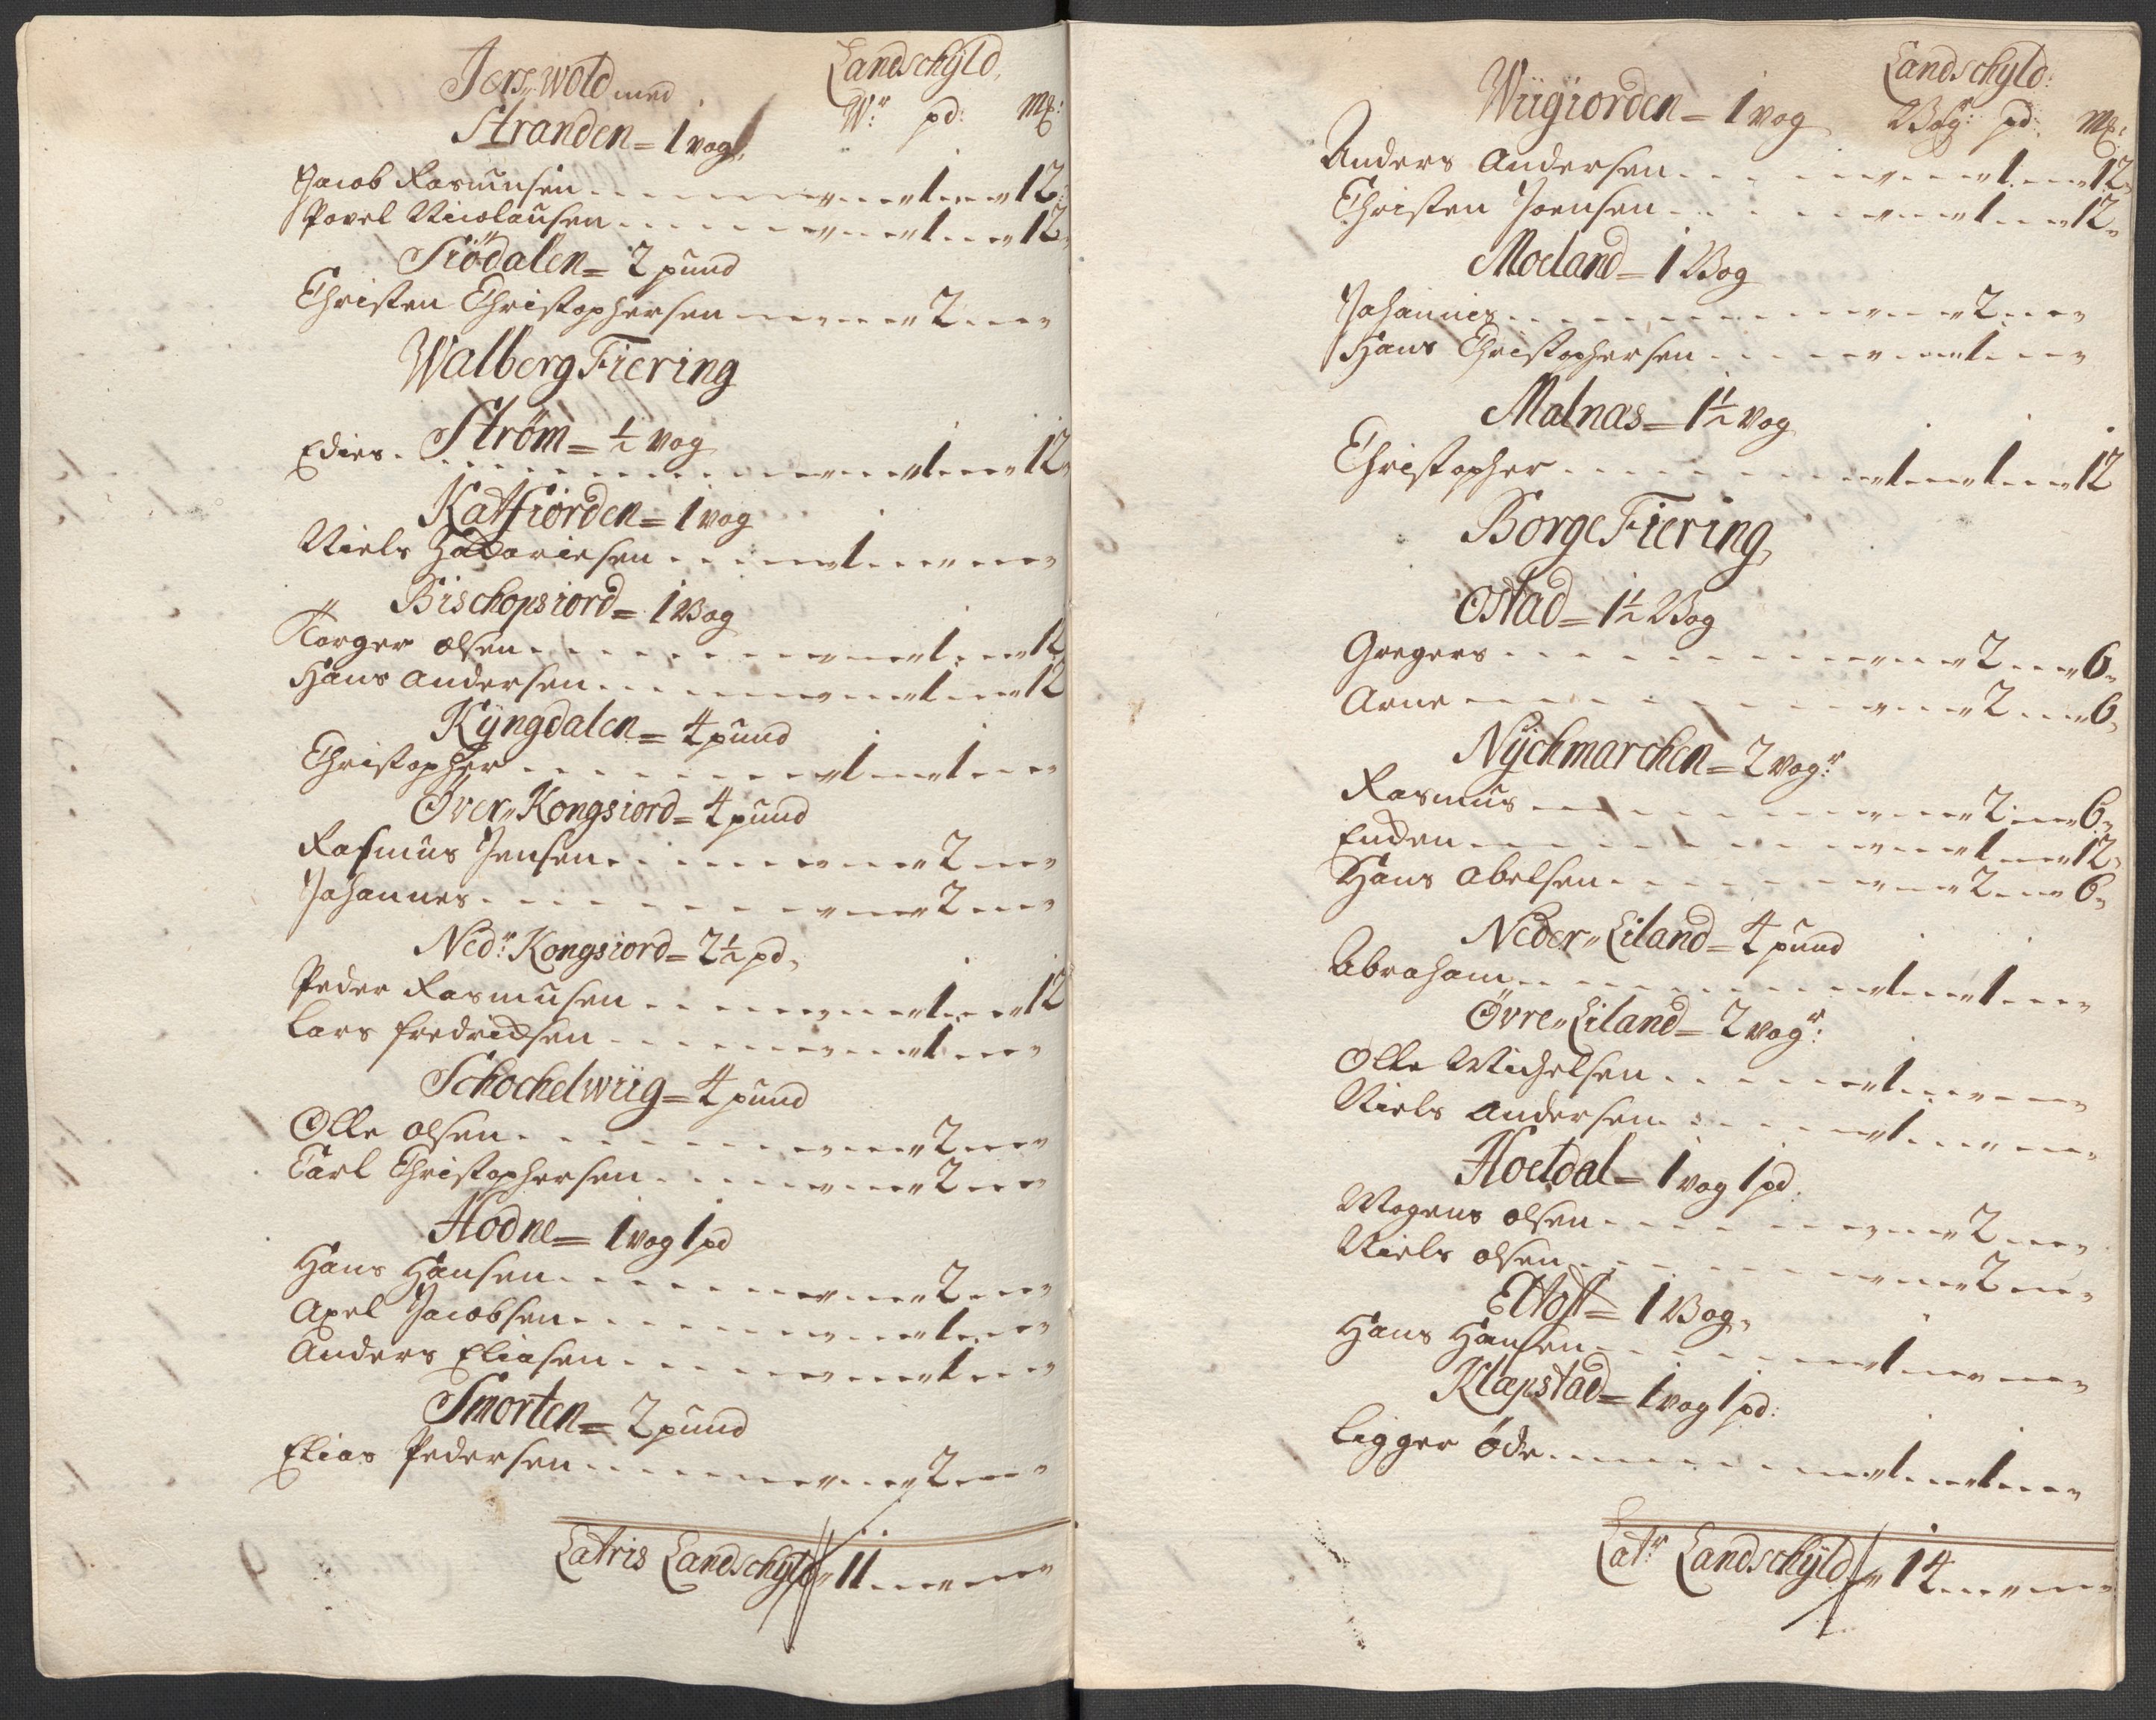 Jers„wold med
Landschÿld,
Stranden = 1 vog,
W:r pd: mk:
Jacob Rasmusen „ 1 „ 12
Povel Nicolausen „ 1 „ 12
Siödalen = 2 pund
Christen Christophersen „ 2 „
Walberg Fiering
Strøm = ½ vog
Edies „ 1 „ 12
Katfiorden = 1 vog
Niels Zacariesen 1 „ „
Bischopsiord = 1 Vog
Torger olsen „ 1 „ 12
Hans Andersen „ 1 „ 12
Kÿngdalen = 4 pund
Christopher 1 „ 1 „
Över„Kongsiord = 4 pund
Rasmus Jensen „ 2 „
Johannes „ 2 „
Ned:r Kongsiord = 2½ pd,
Peder Rasmusen „ 1 „ 12
Lars fredricksen „ 1 „
Schochelwiig = 4 pund
Olle olsen „ 2 „
Carl Christophersen „ 2 „
Hodne = 1 vog 1 pd
Hans Hansen „ 2 „
Axel Jacobsen „ 1 „
Anders Eliasen „ 1 „
Smorten = 2 pund
Elias Pedersen „ 2 „
Latris Landschÿld „ 11 „ „
Landschÿld:
Wiigiorden = 1 vog
Vog:r pd: mk:
Anders Andersen „ 1 „ 12
Christen Joensen „ 1 „ 12
Moeland = 1 Vog
Johannes „ 2 „
Hans Christophersen „ 1 „
Malnæs = 1½ Vog
Christopher 1 „ 1 „ 12
Borge Fiering,
Ostad = 1½ Vog
Gregers „ 2 „ 6
Arne „ 2 „ 6
Nÿchmarchen = 2 vog:r
Rasmus „ 2 „ 6
Enden „ 1 „ 12
Hans Abelsen „ 2 „ 6
Neder„Eiland = 4 pund
Abraham 1 „ 1 „
Övre„Eiland = 2 vog:r
Olle Michelsen 1 „ „
Niels Andersen 1 „ „
Hoeldal = 1 vog 1 pd:
Mogens olsen „ 2 „
Niels olsen „ 2 „
Eltoft = 1 Vog,
Hans Hansen 1 „ „
Klæpstad = 1 vog 1 pd:
Ligger öde 1 „ 1 „
Lat:r Landschÿld „ 14 „ „